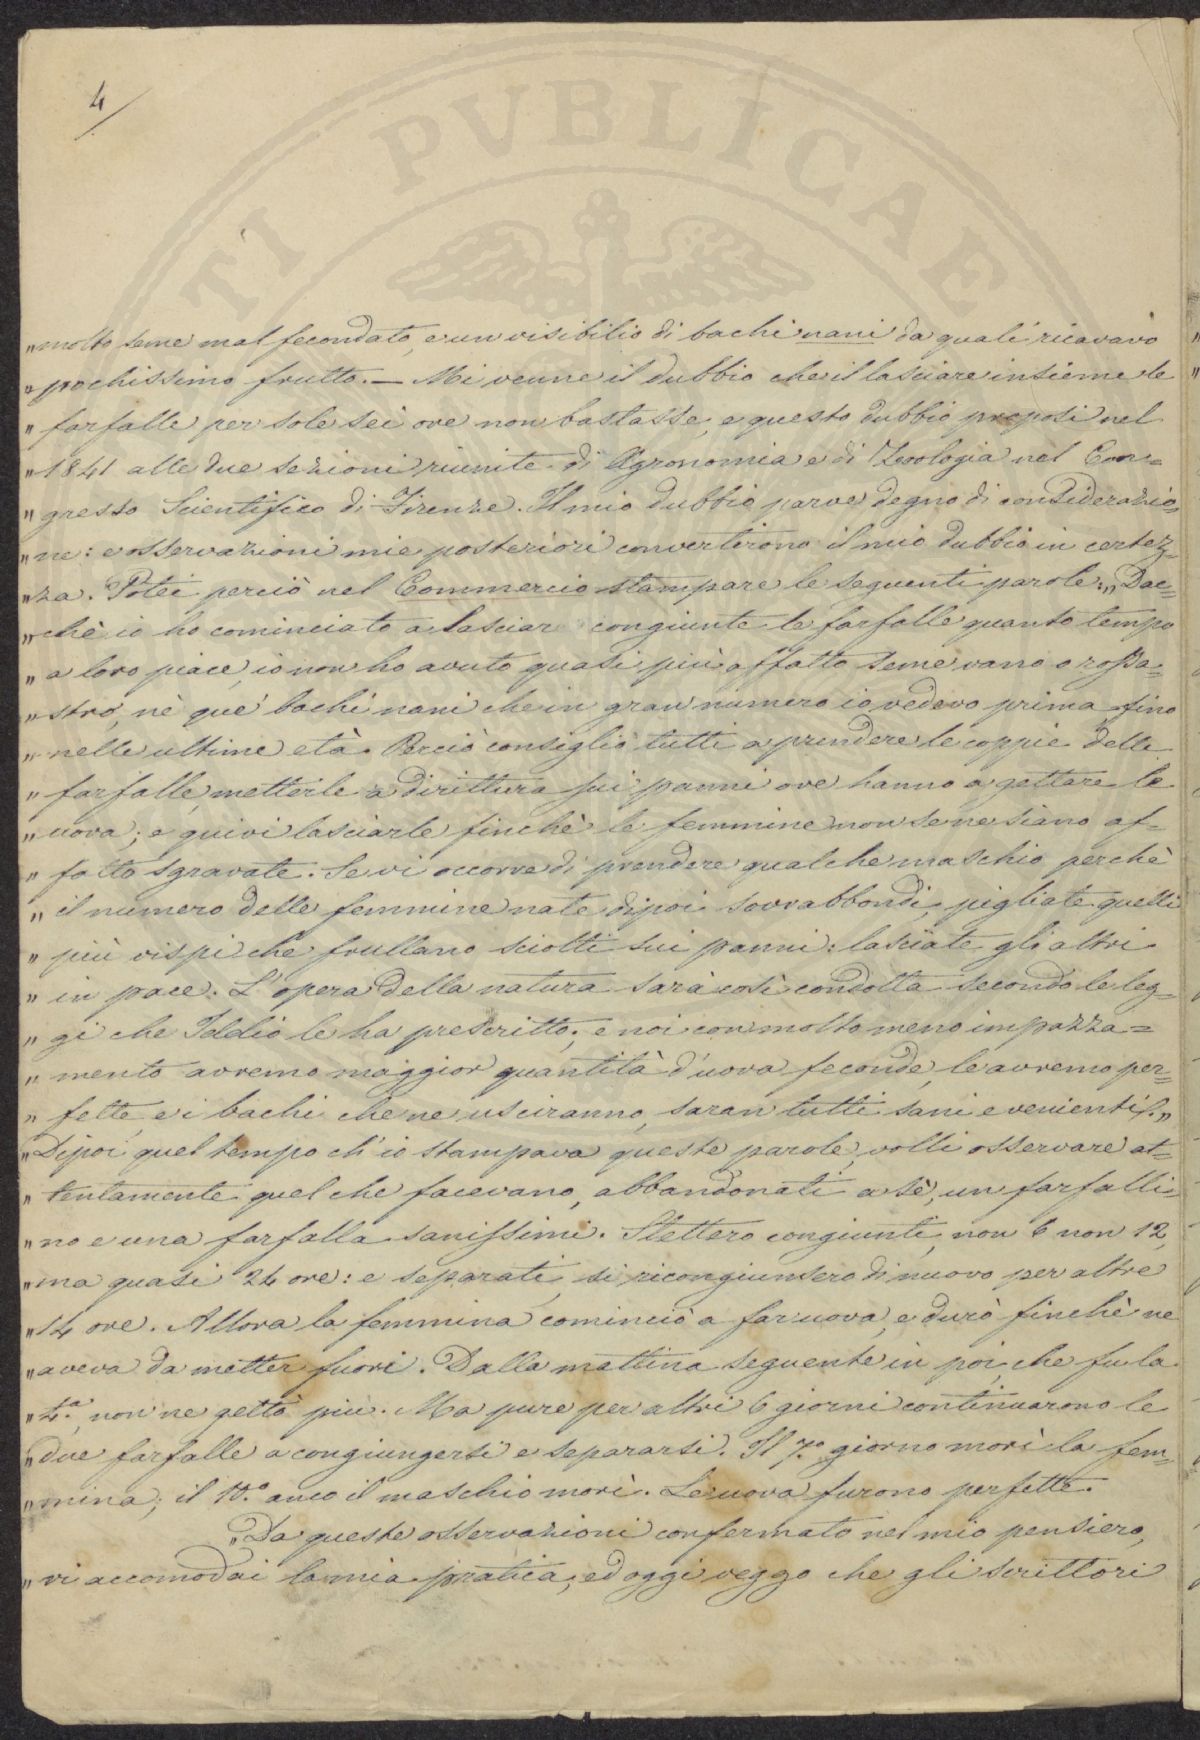 4/
TI PVBLICAE
„ molto seme mal fecondato, e un visibilio di bachi nani da quali ricavavo
„ pochissimo frutto. — Mi venne il dubbio che il lasciare insieme le
„ farfalle per sole sei ore non bastasse, e questo dubbio proposi nel
„ 1841 alle due sezioni riunite di Agronomia e di Zoologia nel Con=
„ gresso Scientifico di Firenze. Il mio dubbio parve degno di considerazio=
„ ne: e osservazioni mie posteriori convertirono il mio dubbio in certez=
„ za. Potei perciò nel Commercio stampare le seguenti parole: „ Dac=
„ chè io ho cominciato a lasciar congiunte le farfalle quanto tempo
„ a loro piace, io non ho avuto quasi più affatto seme vano o rossa=
„ stro, nè que' bachi nani che in gran numero io vedevo prima fino
„ nelle ultime età. Perciò consiglio tutti a prendere le coppie delle
„ farfalle, metterle a dirittura sui panni ove hanno a gettare le
„ uova; e quivi lasciarle finchè le femmine non se ne siano af=
„ fatto sgravate. Se vi occorre di prendere qualche maschio perchè
„ il numero delle femmine nate dipoi sovrabbondi, pigliate quelli
„ più vispi che frullano sciolti sui panni: lasciate gli altri
„ in pace. L'opera della natura sarà così condotta secondo le leg=
„ gi che Iddio le ha prescritto; e noi con molto meno impazza=
„ mento avremo maggior quantità d'uova feconde, le avremo per=
„ fette, e i bachi che ne usciranno, saran tutti sani e venienti. „
„ Dipoi quel tempo ch'io stampava queste parole, volli osservare at=
„ tentamente quel che facevano, abbandonati a sè, un farfalli=
„ no e una farfalla sanissimi. Stettero congiunti, non 6 non 12,
„ ma quasi 24 ore: e separati, si ricongiunsero di nuovo per altre
„ 14 ore. Allora la femmina cominciò a far uova, e durò finchè ne
„ aveva da metter fuori. Dalla mattina seguente in poi, che fu la
„ 4.a, non ne gettò più. Ma pure per altri 6 giorni continuarono le
„ due farfalle a congiungersi e separarsi. Il 7.o giorno morì la fem=
„ mina; il 10.o anco il maschio morì. Le uova furono perfette.
„ Da queste osservazioni confermato nel mio pensiero,
„ vi accomodai la mia pratica; ed oggi veggo che gli scrittori